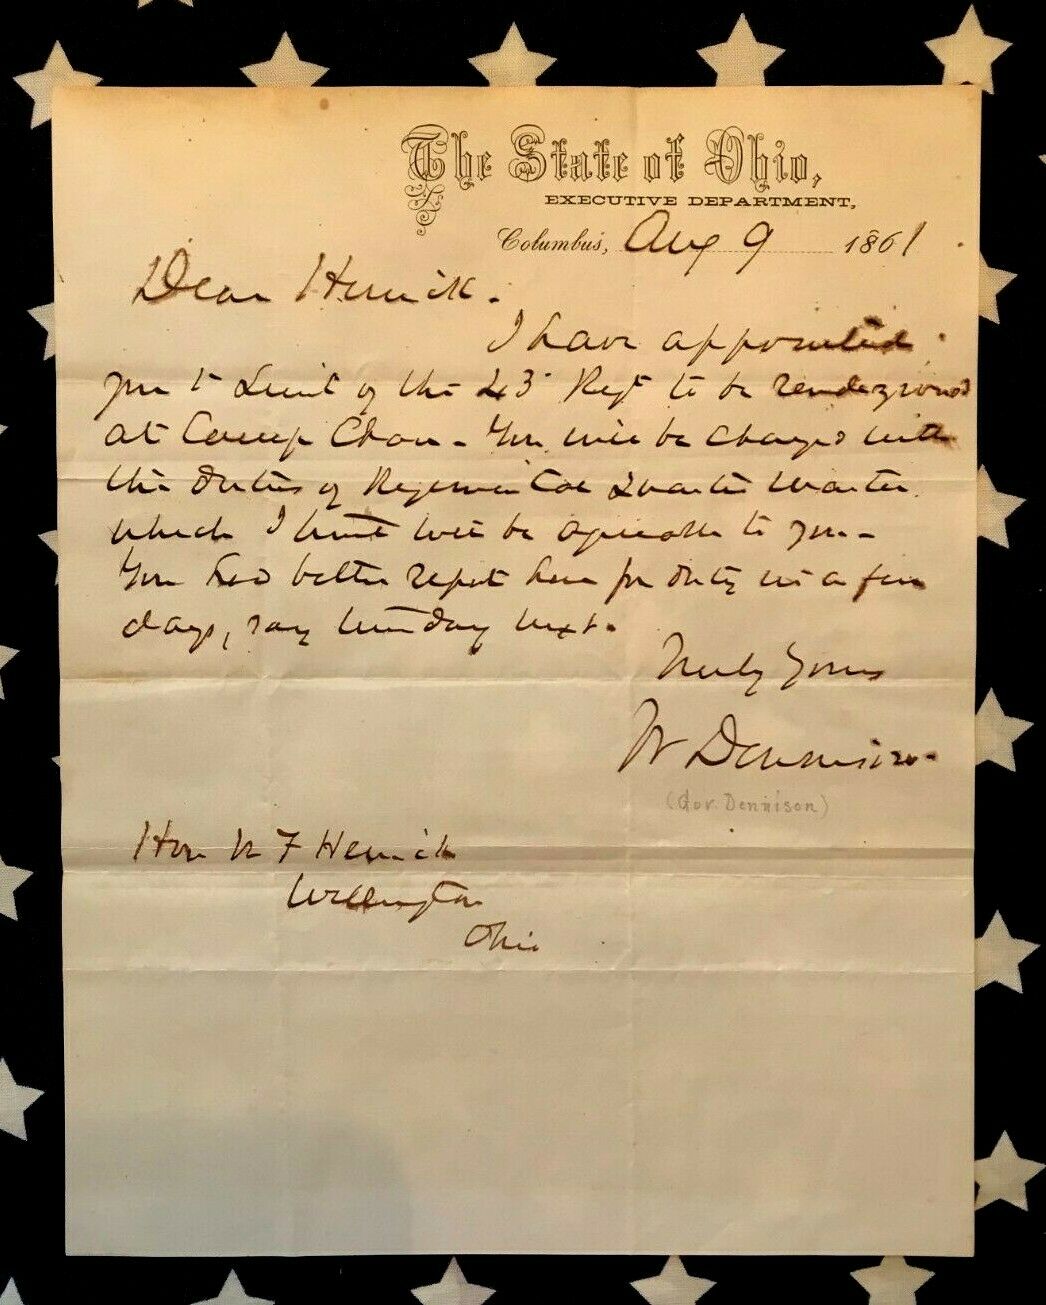 The State of Ohio,
EXECUTIVE DEPARTMENT,
Columbus, Aug 9 1861.
Dear Herrick.
I have appointed
you 1st Lieut of the 43d Regt to be rendezvoused
at Camp Chase - You will be charged with
the duties of Regimental Quarter Master
which I trust will be agreeable to you -
You had better report here for duty in a few
days, say Monday next.
Truly Yours
W Dennison
(Gov. Dennison)
Hon F Herrick
Wellington
Ohio